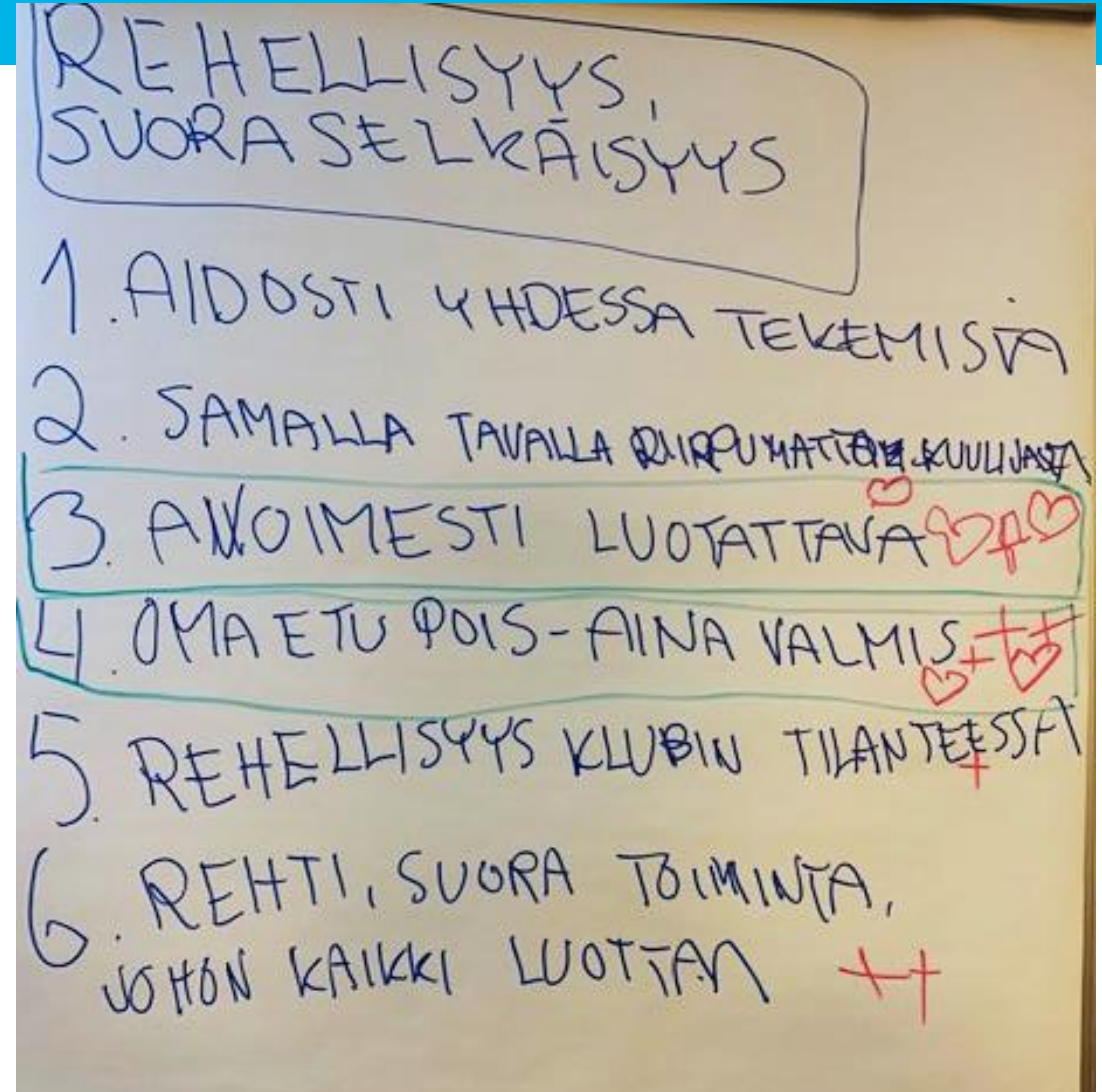 REHELLISYYS,
SUORASELKÄISYYS
1. AIDOSTI YHDESSA TEKEMISTA
2. SAMALLA TAVALLA RIIPPUMATTA KUULIJASTA
3. AVOIMESTI LUOTATTAVA
4. OMA ETU POIS-AINA VALMIS +++
5. REHELLISYYS KLUBIN TILANTEESSA
+
6. REHTI, SUORA TOIMINTA,
JOHON KAIKKI LUOTTAA ++